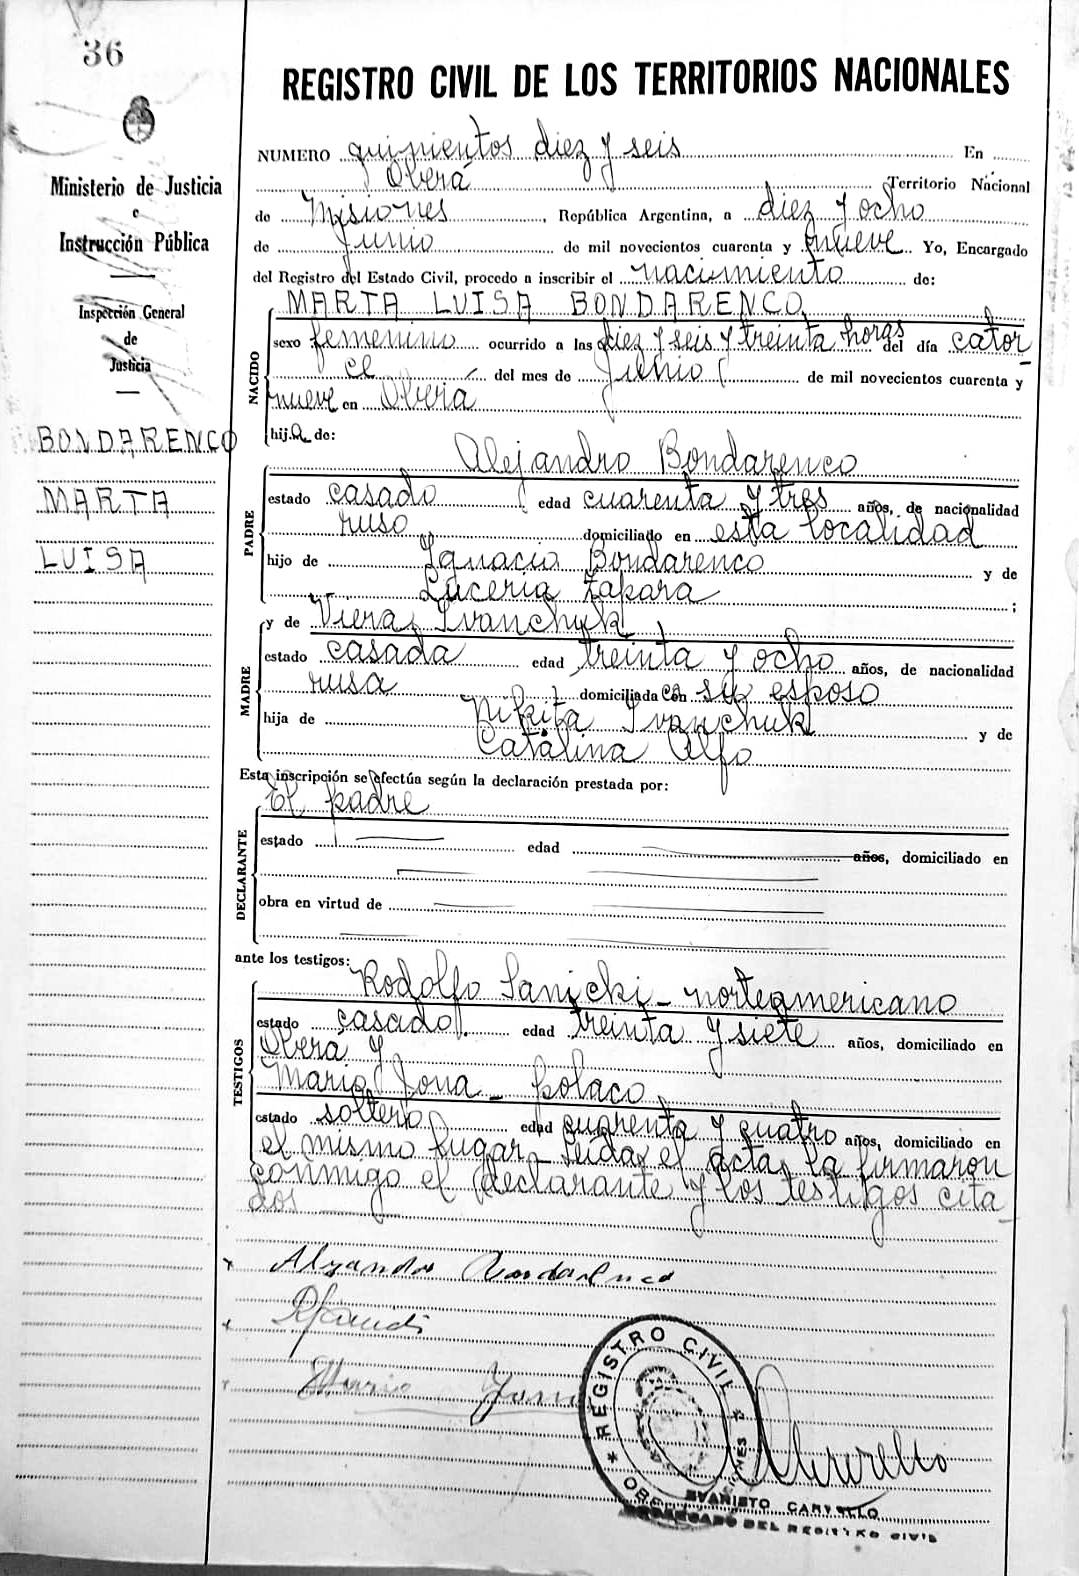 36
REGISTRO CIVIL DE LOS TERRITORIOS NACIONALES
Ministerio de Justicia
e
Instrucción Pública
Inspección General
de
Justicia
BONDARENCO
MARTA
LUISA
NUMERO quinientos diez y seis En
Oberá Territorio Nacional
de Misiones, República Argentina, a diez y ocho
de Junio de mil novecientos cuarenta y nueve Yo, Encargado
del Registro del Estado Civil, procedo a inscribir el nacimiento de:
NACIDO
MARTA LUISA BONDARENCO
sexo femenino ocurrido a las diez y seis y treinta horas del día cator-
ce del mes de Junio de mil novecientos cuarenta y
nueve en Oberá
hija de:
PADRE
Alejandro Bondarenco
estado casado edad cuarenta y tres años, de nacionalidad
ruso domiciliado en esta localidad
hijo de Ignacio Bondarenco y de
Luceria Zapara;
MADRE
y de Viera Ivanchuk
estado casada edad treinta y ocho años, de nacionalidad
rusa domiciliada con su esposo
hija de Nikita Ivanchuk y de
Catalina Alfo
Esta inscripción se efectúa según la declaración prestada por:
El padre
DECLARANTE
estado edad años, domiciliado en
obra en virtud de
ante los testigos:
TESTIGOS
Rodolfo Sanicki - norteamericano
estado casado edad treinta y siete años, domiciliado en
Oberá y
Mario Jona - polaco
estado soltero edad cuarenta y cuatro años, domiciliado en
el mismo lugar - Leída el acta, la firmaron
conmigo el declarante y los testigos cita-
dos
Alejandro Bondarenco
Mario Jona
REGISTRO CIVIL
EVARISTO CARVALLO
ENCARGADO DEL REGISTRO CIVIL